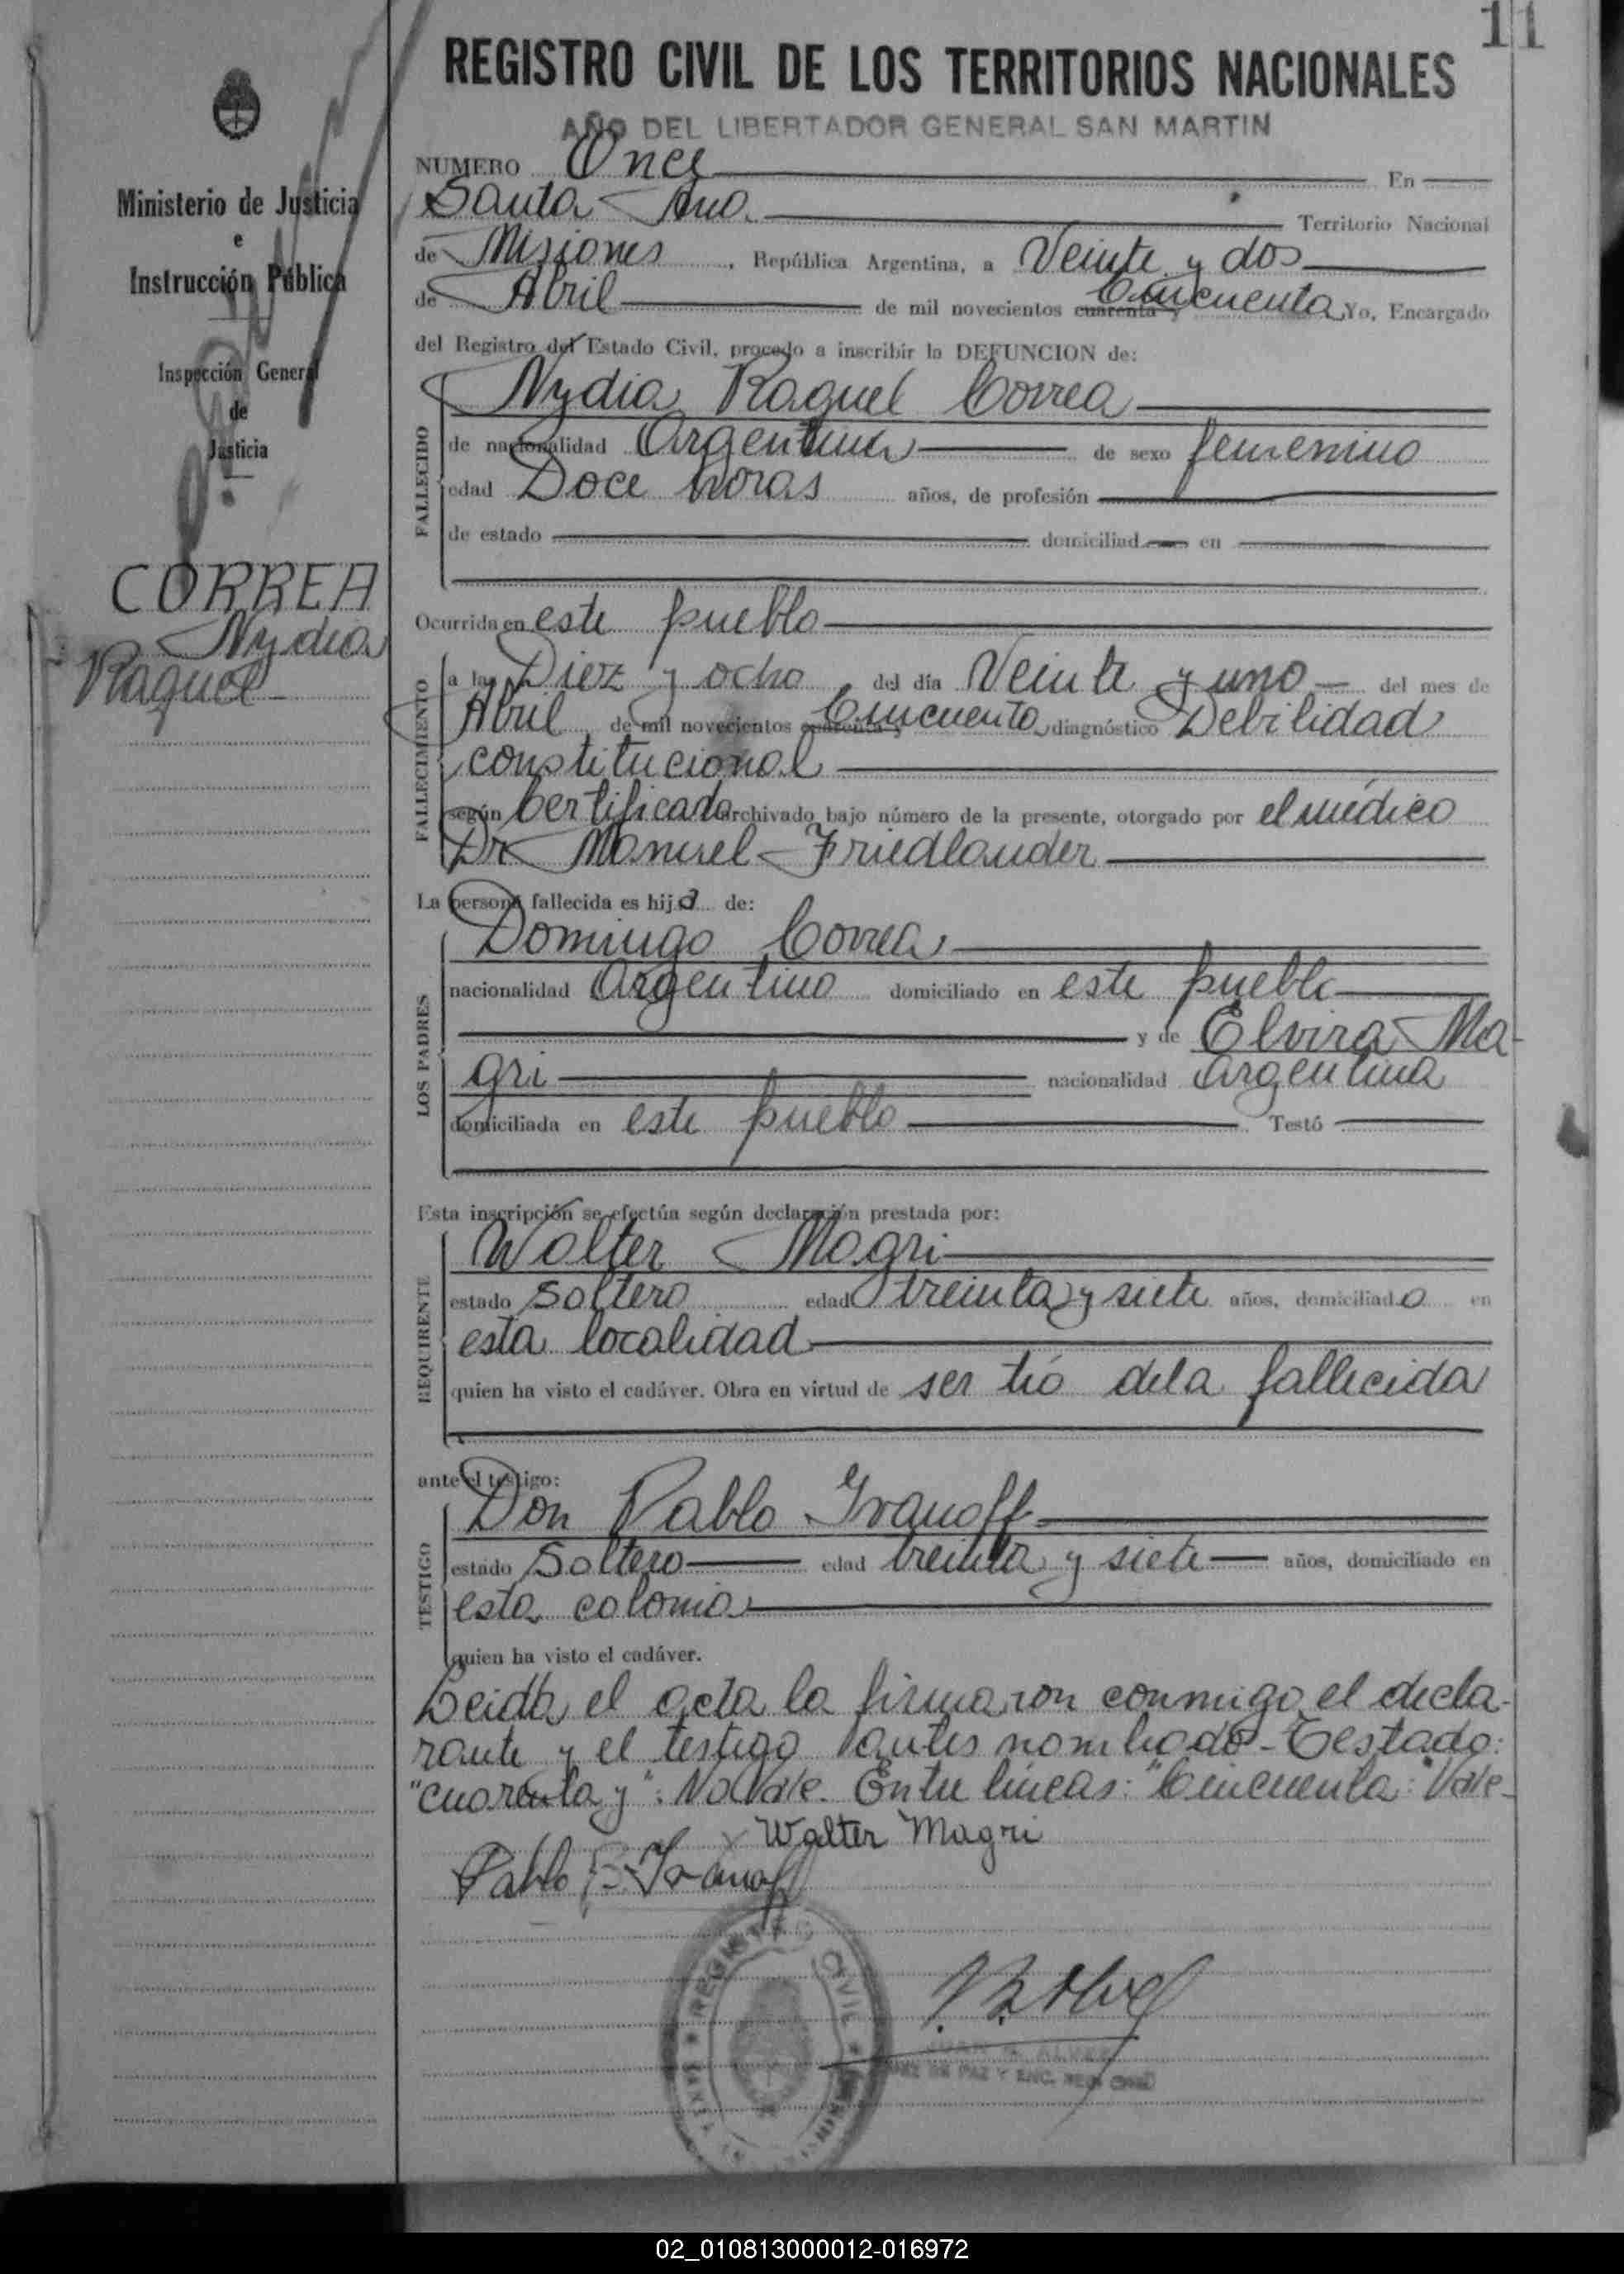 11
REGISTRO CIVIL DE LOS TERRITORIOS NACIONALES
AÑO DEL LIBERTADOR GENERAL SAN MARTIN
Ministerio de Justicia
e
Instrucción Pública
Inspección General
de
Justicia
CORREA
Nydia
Raquel
NUMERO Once En
Santa Ana Territorio Nacional
de Misiones, República Argentina, a Veinte y dos
de Abril de mil novecientos cuarenta y Cincuenta Yo, Encargado
del Registro del Estado Civil, procedo a inscribir la DEFUNCION de:
Nydia Raquel Correa
FALLECIDO
de nacionalidad Argentina de sexo femenino
edad Doce horas años, de profesión
de estado domiciliad en
Ocurrida en este pueblo
FALLECIMIENTO
a las Diez y ocho del día Veinte y uno del mes de
Abril de mil novecientos cuarenta y Cincuenta, diagnóstico Debilidad
constitucional
según Certificado archivado bajo número de la presente, otorgado por el médico
Dr Manuel Friedlander
La persona fallecida es hija de:
LOS PADRES
Domingo Correa
nacionalidad Argentino domiciliado en este pueblo
y de Elvira Ma-
gri nacionalidad Argentina
domiciliada en este pueblo Testó
Esta inscripción se efectúa según declaración prestada por:
REQUIRENTE
Walter Magri
estado Soltero edad treinta y siete años, domiciliado en
esta localidad
quien ha visto el cadáver. Obra en virtud de ser tió dela fallecida
ante el testigo:
TESTIGO
Don Pablo Ivanoff
estado Soltero edad treinta y siete años, domiciliado en
esta colonia
quien ha visto el cadáver.
Leida el acta la firmaron conmigo el decla-
rante y el testigo antes nombrado - Testado:
"cuarenta y": No Vale. Entre lineas: "Cincuenta": Vale-
Walter Magri
Pablo Ivanoff
REGISTRO CIVIL
JUEZ DE PAZ Y ENC. REG. CIVIL
02_010813000012-016972